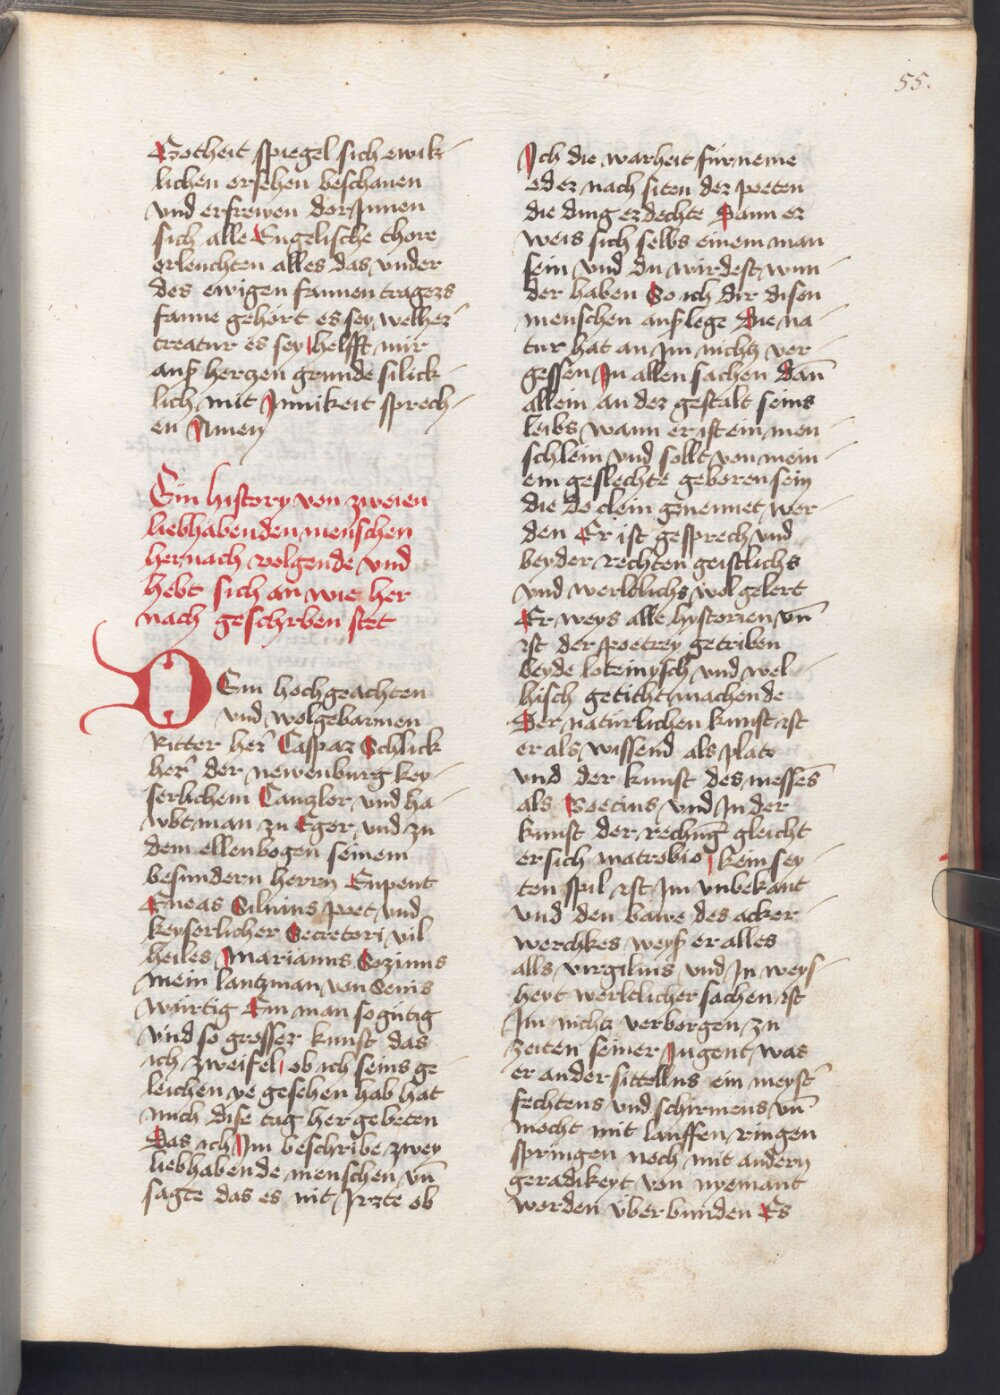 55.
Gotheit spiegel sich ewik-
lichen ersehen beschauen
vnd erfrewen dor Jnnen
sich alle Engelische chore
erleuchten alles das vnder
des ewigen fannen tragers
fanne gehört es sey welher
creatur es sey helfft mir
auß hertzen grunde silick-
lich mit Jnnikeit sprech-
en Amen
Ein history von zweien
liebhabenden menschen
hernach volgende vnd
hebt sich an wie her
nach geschrben stet
DEm hochgeachten
vnd wolgebarnen
Ritter her Caspar Schlick
her der newenburg key-
serlichem Cantzler vnd ha-
wbtman zu Eger vnd zu
dem ellenbogen seinem
besundern herrn Enpeut
Eneas Siluius poet vnd
keyserlicher Secretori vil
heiles Marianus Sozinus
mein lantzman von Senis
würtig Ein man so gütig
vnd so grosser kunst das
ich zweifel ob ich seins ge-
leichen ye gesehen hab hat
mich dise tag her gebeten
Das ich Jm beschribe zwey
liebhabende menschen vn̄
sagte das es nit Jrrte ob
Jch die warheit fürneme
oder nach siten der poeten
die ding erdechte Dann er
weis sich selbs einem man
sein vnd du wirdest wun-
der haben So ich dir disen
menschen auß lege Die na-
tur hat an Jm nichtz ver-
gessen Jn allen sachen dan̄
allein an der gestalt seins
leibs wann er ist ein men-
schlein vnd sollt von mein-
em geslechte geboren sein
die do clein genennet wer-
den Er ist gesprech vnd
beyder rechten geistlichs
vnd werltlichs wol gelert
Er weys alle hystorien vn̄
ist der poetrey getriben
beyde loteinysch vnd wel-
hisch geticht machende
Der natürlichen kunst ist
er als wissend als plato
vnd der kunst des messēs
als Boecius vnd Jn der
kunst der rechnūg gleicht
er sich matrobio kein sey-
ten spil ist Jm vnbekant
vnd den bawe des acker-
werchkes weyß er alles
alls virgilius vnd Jn weys-
heyt werltlicher sachen ist
Jm nichtz verborgen zu
zeiten seiner Jugent was
er ander sittellus ein meyst̄
fechtens vnd schirmens vn̄
mocht mit lauffen ringen
springen noch mit andern
geradikeyt von nyemant
worden überbunden Es